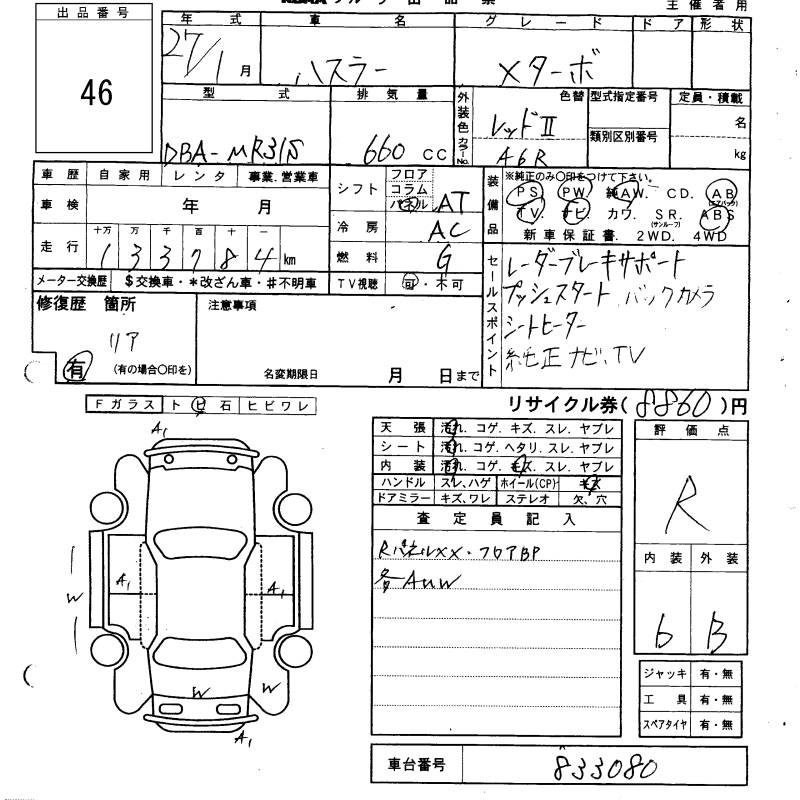 出品番号
46
主催者用
年式 車名 グレード ドア 形状
27/1月 ハスラー Xターボ
型式 排気量 外装色 色替 カラーNo. 型式指定番号 定員・積載
DBA-MR31S 660 CC レッドII A6R 類別区別番号 名 kg
車歴 自家用 レンタ 事業.営業車
車検 年 月
走行 十万 万 千 百 十 一
133784 km
シフト フロア コラム パネル AT
冷房 AC
燃料 G
装備品 ※純正のみ〇印をつけて下さい。
PS PW 純AW. CD. AB (エアバック)
TV. ナビ カワ. SR. (サンルーフ) ABS
新車保証書. 2WD. 4WD
メーター交換歴 $交換車・*改ざん車・#不明車 TV視聴 可・不可
セールスポイント
レーダーブレーキサポート
プッシュスタート バックカメラ
シートヒーター
純正ナビ、TV
修復歴 箇所 注意事項
リア
有 (有の場合〇印を) 名変期限日 月 日まで
リサイクル券(8860)円
Fガラス ト ビ 石 ヒビワレ
天張 汚れ. コゲ. キズ. スレ. ヤブレ
シート 汚れ. コゲ. ヘタリ. スレ. ヤブレ
内装 汚れ. コゲ. キズ. スレ. ヤブレ
ハンドル スレ、ハゲ ホイール(CP) キズ
ドアミラー キズ、ワレ ステレオ 欠、穴
評価点
R
内装 外装
6 B
査定員記入
RパネルXX・フロアBP
各AUW
A1
A1
A1
W
W
W
A1
ジャッキ 有・無
工具 有・無
スペアタイヤ 有・無
車台番号 833080